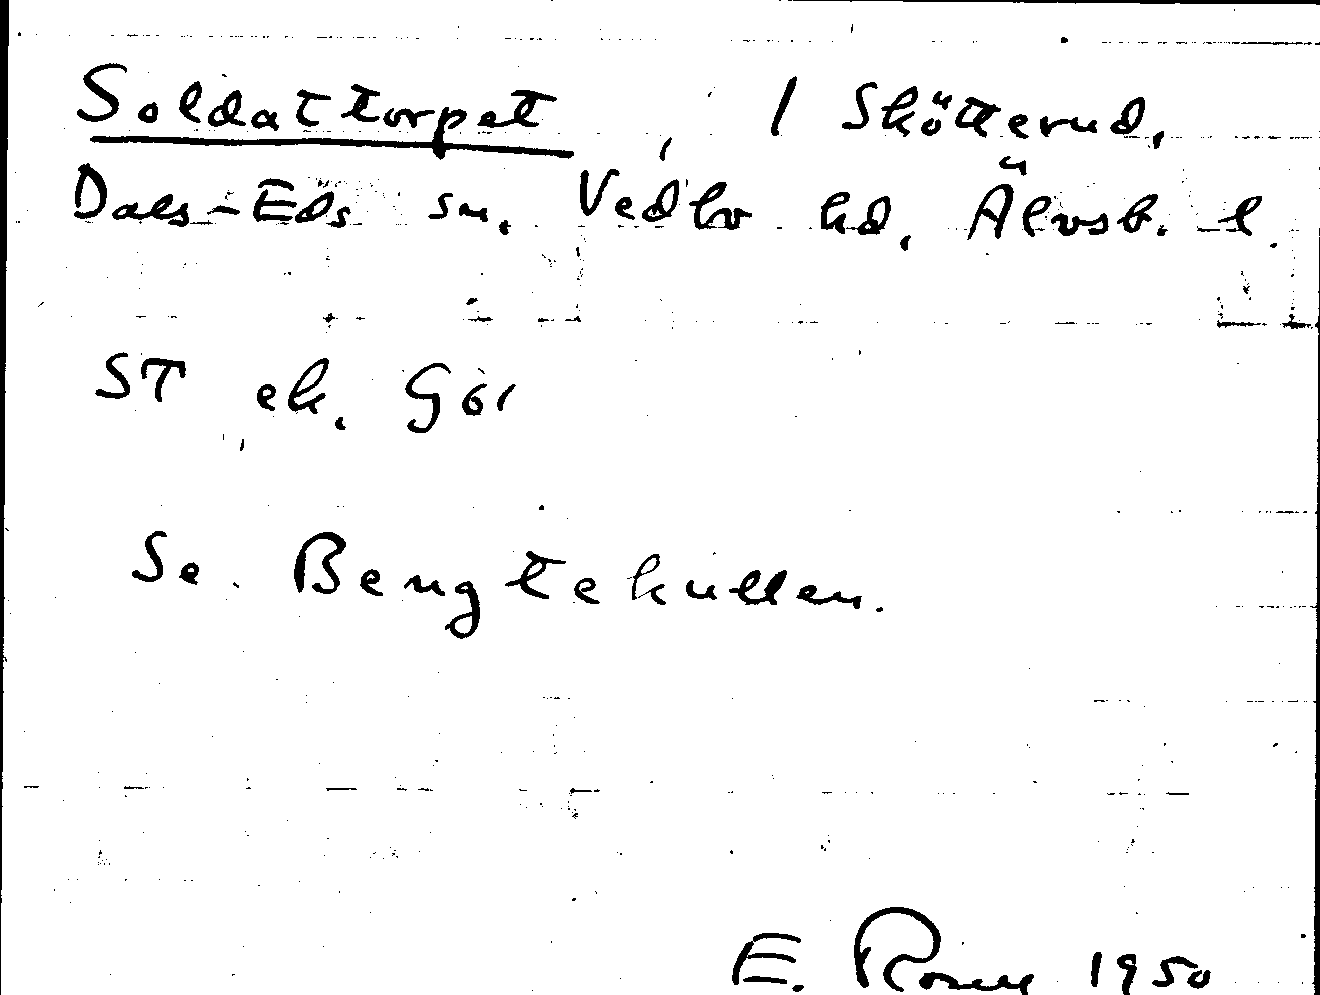 Soldattorpet, / Skötterud,
Dals-Eds sn. Vedbo hd, Älvsb. l.
ST ek. G61
Se. Bengtekullen.
E. 1950